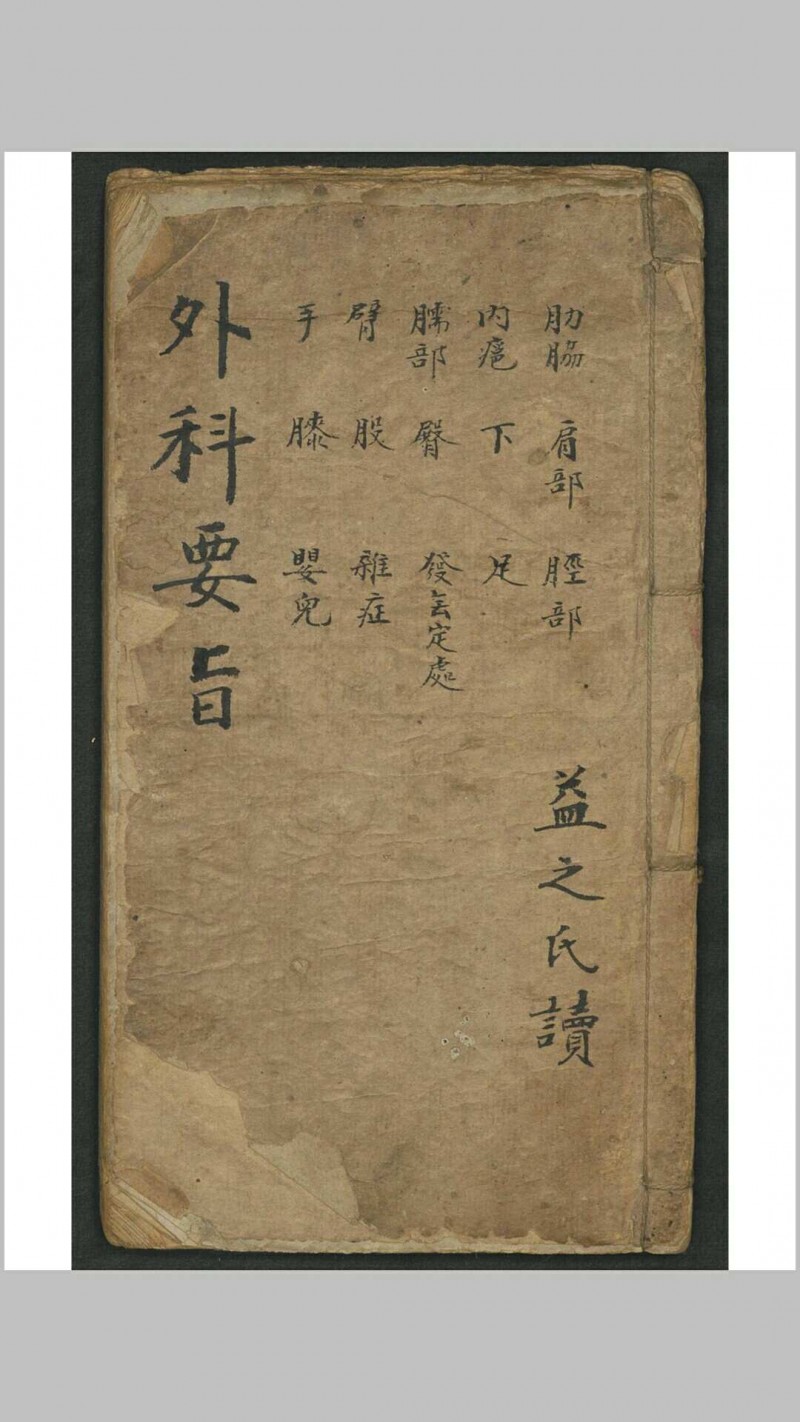 肋脇 肩部 脛部
益之氏讀
内 下 足
臑部 臀 發无定處
臂 股 雜症
手 膝 嬰兒
外科要旨